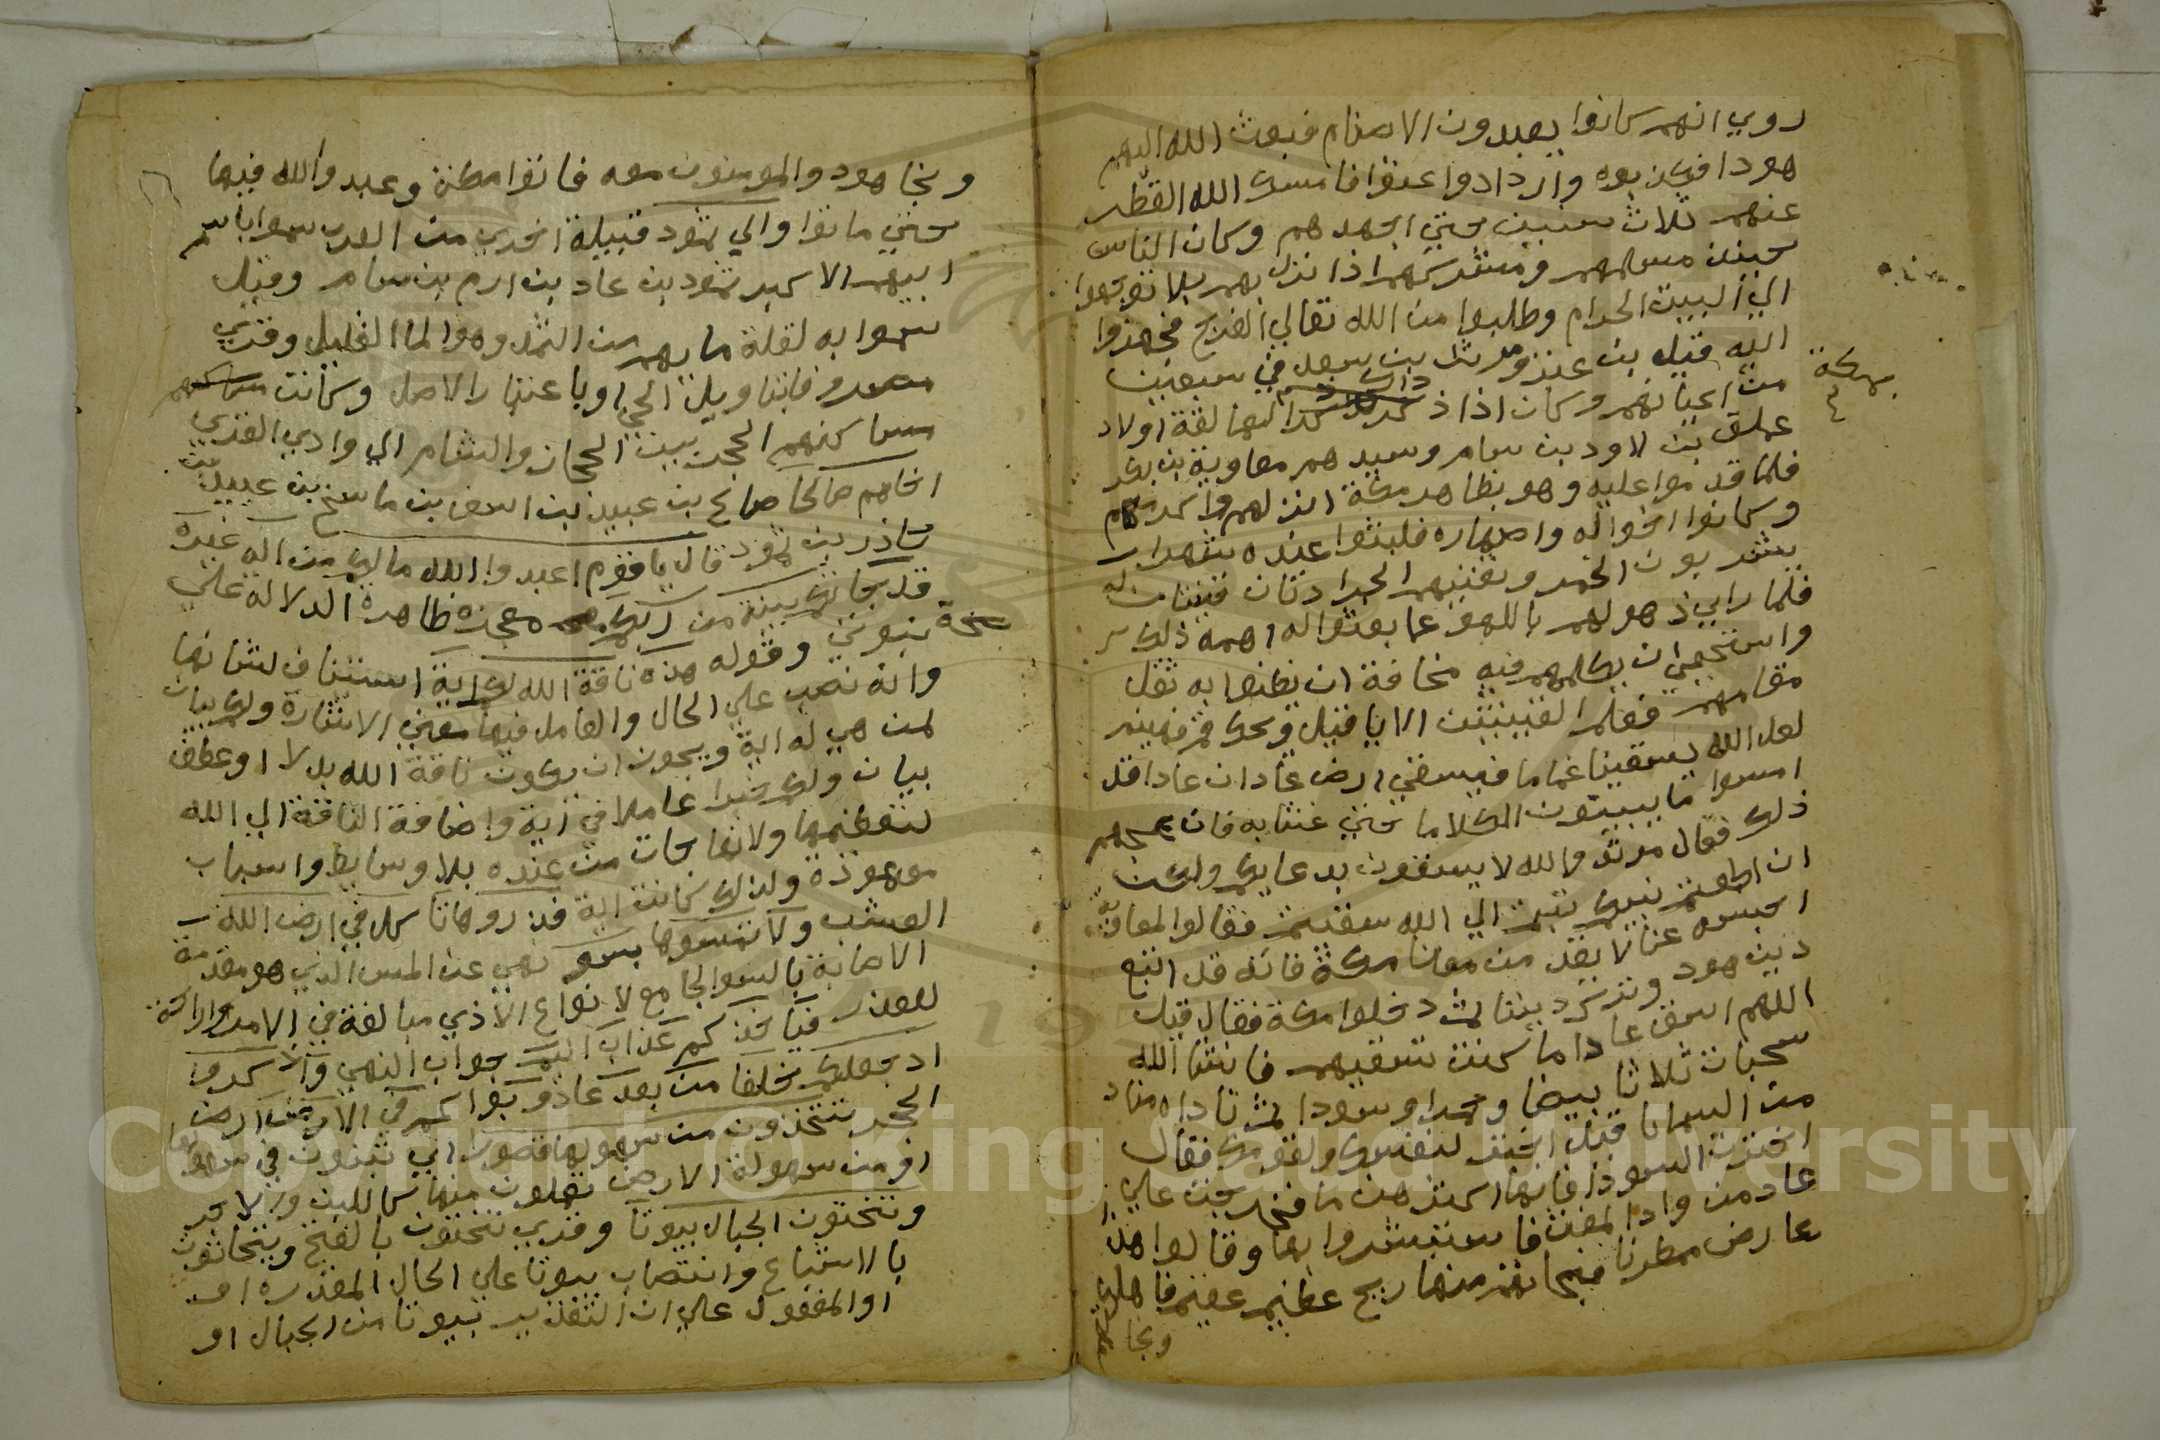 روي انهم كانوا يعبدون الاصنام فبعث الله اليهم
هودا فكذبوه وازدادوا عتوا فامسك الله القطر
عنهم ثلاث سنين حتي اجهدهم وكان الناس
حينئذ مسلمهم ومشركهم اذا نزل بهم بلا توجهوا
الي البيت الحرام وطلبوا من الله تعالي الفرج فجهزوا
اليه قيل بن عنز ومرثد بن سعد في سبعين
من اعيانهم وكان اذ ذاك بمكة العمالقة اولاد
بمكة
عمليق بن لاود بن سام وسيدهم معاوية بن بكر
فلما قدموا عليه وهو بظاهر مكة انزلهم واكرمهم
وكانوا اخواله واصهاره فلبثوا عنده شهرا
يشربون الخمر وتغنيهم الجرادتان قينتان له
فلما راي ذهولهم باللهو عما بعثوا له اهمه ذلك
واستحيي ان يكلمهم فيه مخافة ان يظنوا به ثقل
مقامهم فعلم القينتين الا يا قيل ويحك قم فهينم
لعل الله يسقينا غماما فيسقي ارض عاد ان عادا قد
امسوا ما يبينون الكلاما حتي غنتا به فازعجهم
ذلك فقال مرثد والله لا يسقون بدعايكم ولكن
ان اطعتم نبيكم وتبتم الي الله سقيتم فقالوا لمعاوية
احبسه عنا لا يقدمن معنا مكة فانه قد اتبع
دين هود وترك ديننا ثم دخلوا مكة فقال قيل
اللهم اسق عادا ما كنت تسقيهم فانشا الله
سحبات ثلاثا بيضا وحمرا وسودا ثم ناداه مناد
من السما يا قيل اختر لنفسك ولقومك فقال
اخترت السودا فانها اكثرهن ما فخرجت علي
عاد من وادا لمغيث فاستبشروا بها وقالوا هذا
عارض ممطرنا فجاتهم منها ريح عظيم عقيم فاهلكتهم
ونجا
ونجا هود والمومنون معه فاتوا مكة وعبدوا الله فيها
حتي ماتوا والي ثمود قبيلة اخري من العرب سموا باسم
ابيهم الاكبر ثمود بن عاد بن ارم بن سام وقيل
سموا به لقلة ما بهم من الثمد وهو الما القليل وقري
مصروفا بتاويل الحي او باعتبار الاصل وكانت
مساكنهم الحجر بين الحجاز والشام الي وادي القري
اخاهم صالحا صالح بن عبيد بن اسف بن ماسخ بن عبيد بن
حاذر بن ثمود قال يا قوم اعبدوا الله ما لكم من اله غيره
قد جاتكم بينة من ربكم معجزه ظاهرة الدلالة علي
صحة نبوتي وقوله هذه ناقة الله لكم اية استيناف لبيانها
واية نصب علي الحال والعامل فيها معني الاشارة ولكم بيان
لمن هي له اية ويجوز ان يكون ناقة الله بدلا او عطف
بيان ولكم خبرا عاملا في اية واضافة الناقة الي الله
لتعظيمها ولانها جات من عنده بلا وسايط واسباب
معهودة ولذلك كانت اية فذروها تاكل في ارض الله
العشب ولا تمسوها بسو نهي عن المس الذي هو مقدمة
الاصابة بالسو الجامع لانواع الاذي مبالغة في الامر وازاحة
للعذر فياخذكم عذاب اليم جواب النهي واذكروا
اذ جعلكم خلفا من بعد عاد وبواكم في الارض ارض
الحجر تتخذون من سهولها قصورا اي تبنون في سهولها
او من سهولة الارض تعملون منها كاللبن والاجر
وتنحتون الجبال بيوتا وقري تنحتون بالفتح وتنحاتون
بالاشباع وانتصاب بيوتا علي الحال المقدره او
او المفعول علي ان التقدير بيوتا من الجبال او